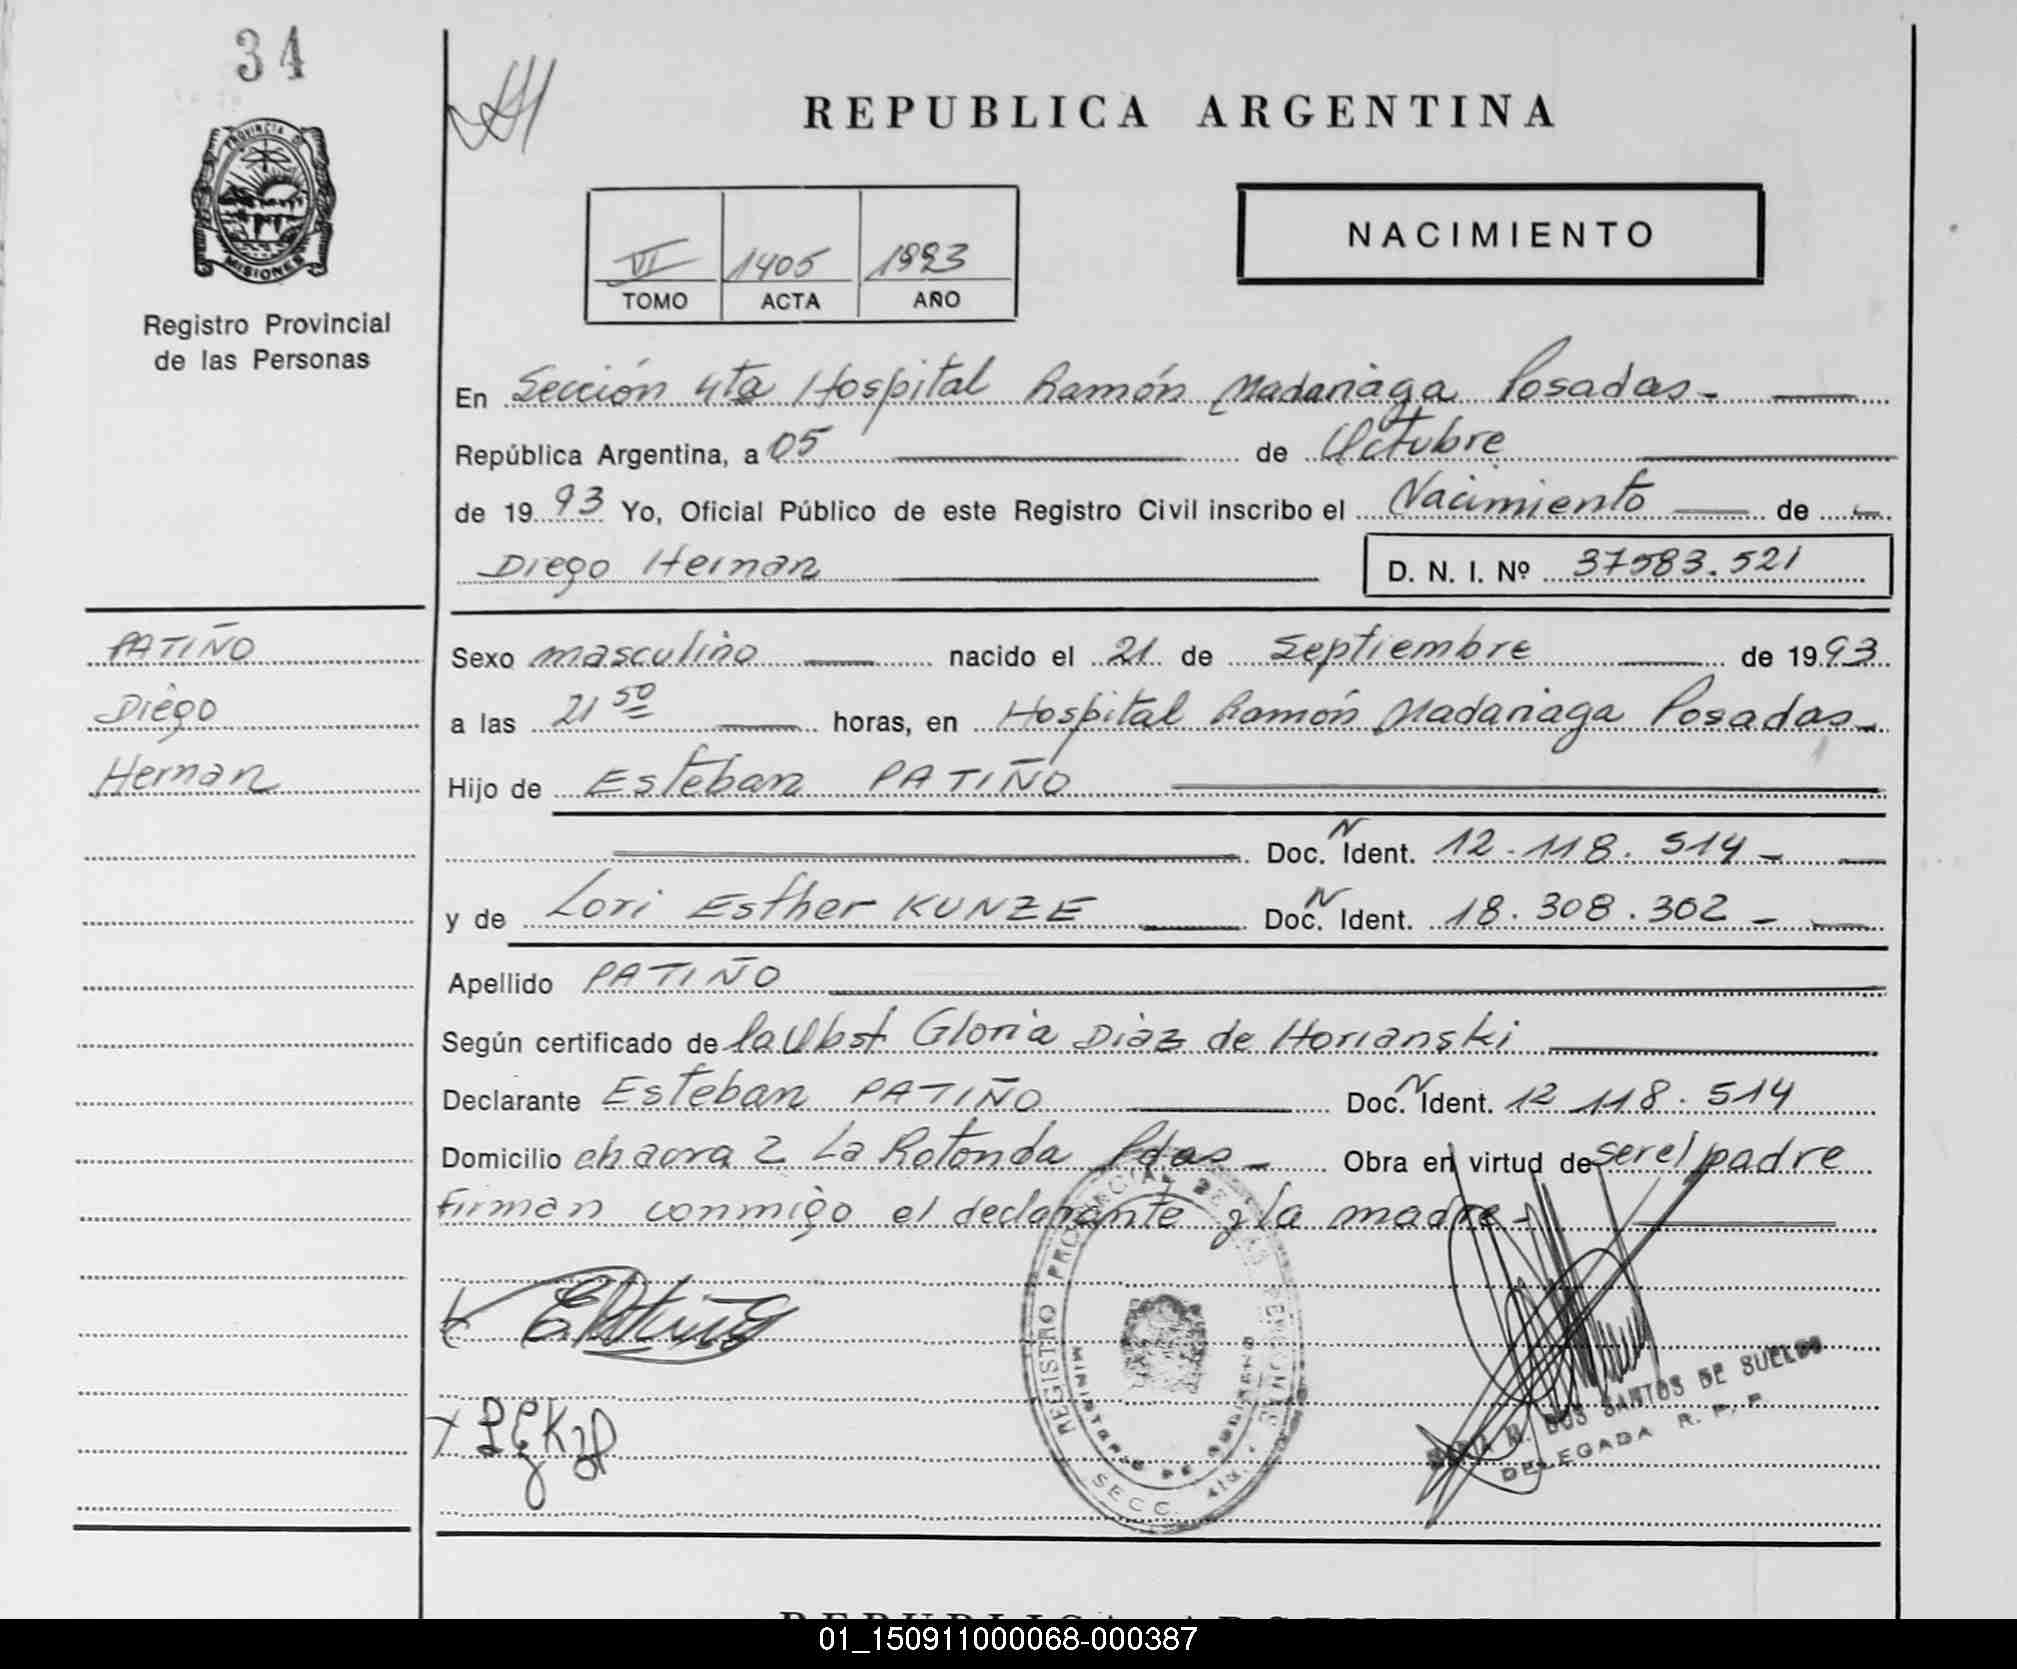 34
PROVINCIA D
MISIONES
Registro Provincial
de las Personas
REPUBLICA ARGENTINA
NACIMIENTO
VI 1405 1993
TOMO ACTA AÑO
En Sección 4ta Hospital Ramón Madariaga Posadas -
República Argentina, a 05 de Octubre
de 19 93 Yo, Oficial Público de este Registro Civil inscribo el Nacimiento de
Diego Hernan D. N. I. Nº 37583.521
PATIÑO
Diego
Hernan
Sexo masculino nacido el 21 de Septiembre de 19 93
a las 21 50 horas, en Hospital Ramón Madariaga Posadas -
Hijo de Esteban PATIÑO
Doc. N Ident. 12.118.514 -
y de Lori Esther KUNZE Doc. N Ident. 18.308.302 -
Apellido PATIÑO
Según certificado de la Obst Gloria Diaz de Horianski
Declarante Esteban PATIÑO Doc. N Ident. 12 118.514
Domicilio chacra 2 La Rotonda Pdas - Obra en virtud de ser el padre
firman conmigo el declarante y la madre -
REGISTRO PROVINCIAL DE LAS PERSONAS
MINISTERIO DE GOBIERNO
SECC. 4ta.
DOS SANTOS DE SUELDO
DELEGADA R. P. P.
REPUBLICA ARGENTINA
01_150911000068-000387